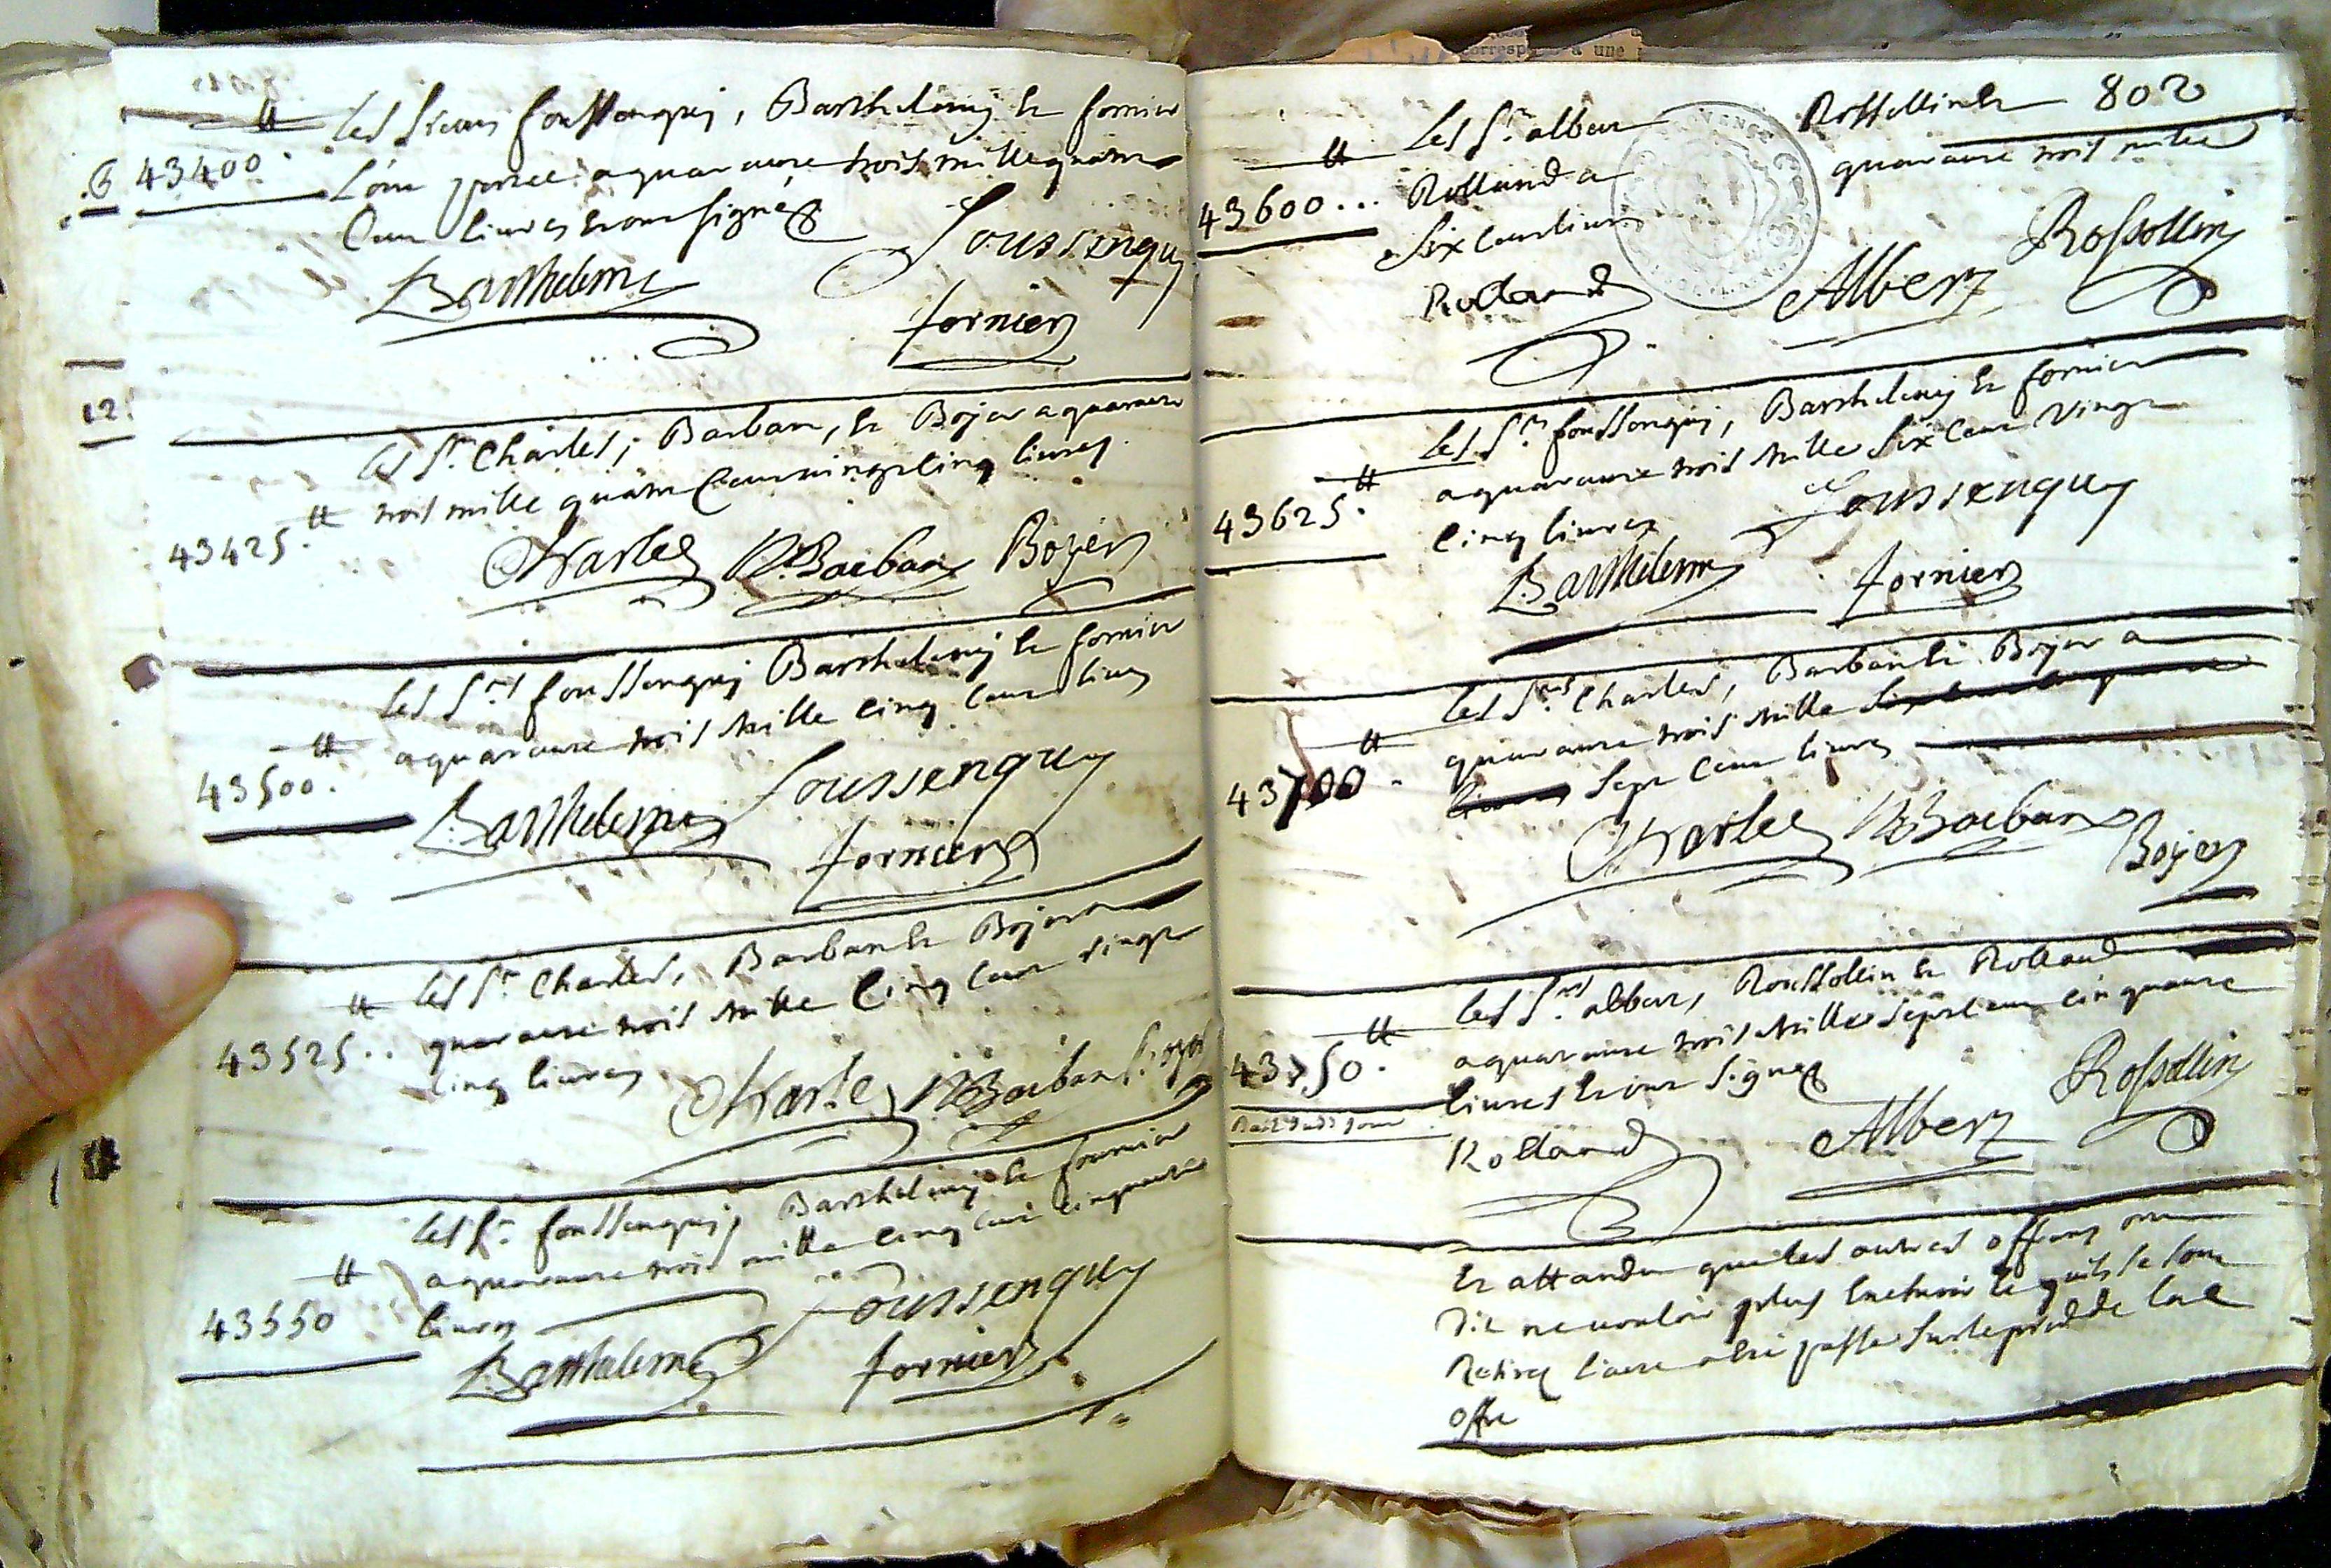 Les sieurs foussenquy, Barthelemy et fornier
6 43400 ₶ L'ont portée a quarante trois mille quatre
Cent livres et ont signé
Soussenquy
Barthelemy
fornier
12.
Les Srs Charles, Barban, et Boyer a quarante
43425 ₶ trois mille quatre Cent vingt cinq livres
Charles Barban Boyer
Les Srs foussenquy Barthelemy et fornier
43500 ₶ a quarante trois mille cinq cent livres
Soussenquy
Barthelemy
fornier
Les Srs Charles, Barban et Boyer a
43525 ₶ quarante trois mille Cinq cent vingt
cinq livres
Charles Barban Boyer
Les Srs foussenquy, Barthelemy et fournier
43550 ₶ a quarante trois mille cinq cent cinquante
livres
Soussenquy
Barthelemy fornier
802
Les Srs albert Rossollin et
43600 ₶ Rolland a quarante trois mille
Six cent livres
Rossollin
Rolland Albert
Les Srs foussenquy, Barthelemy et fornier
43625 ₶ a quarante trois mille Six Cent Vingt
cinq livres
Soussenquy
Barthelemy fornier
Les Srs Charles, Barban et Boyer a
43700 ₶ quarante trois mille
Sept Cent livres
Charles Barban
Boyer
Les Srs albert, Roussollin et Rolland
43750 ₶ a quarante trois mille Sept cent cinquante
livres et ont Signé
Rossollin
Rolland Albert
Et attandu que les autres offrans ont
dit ne vouloir plus encherir et quils se sont
Retirés
offre